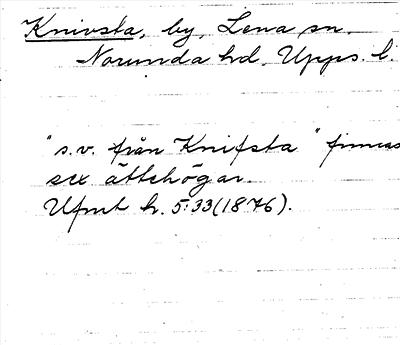 Knivsta, by, Lena sn.
Norunda hd. Upps. l.
"s.v. från Knifsta" finnas
sex ättehögar.
Ufmt h. 5:33(1876).